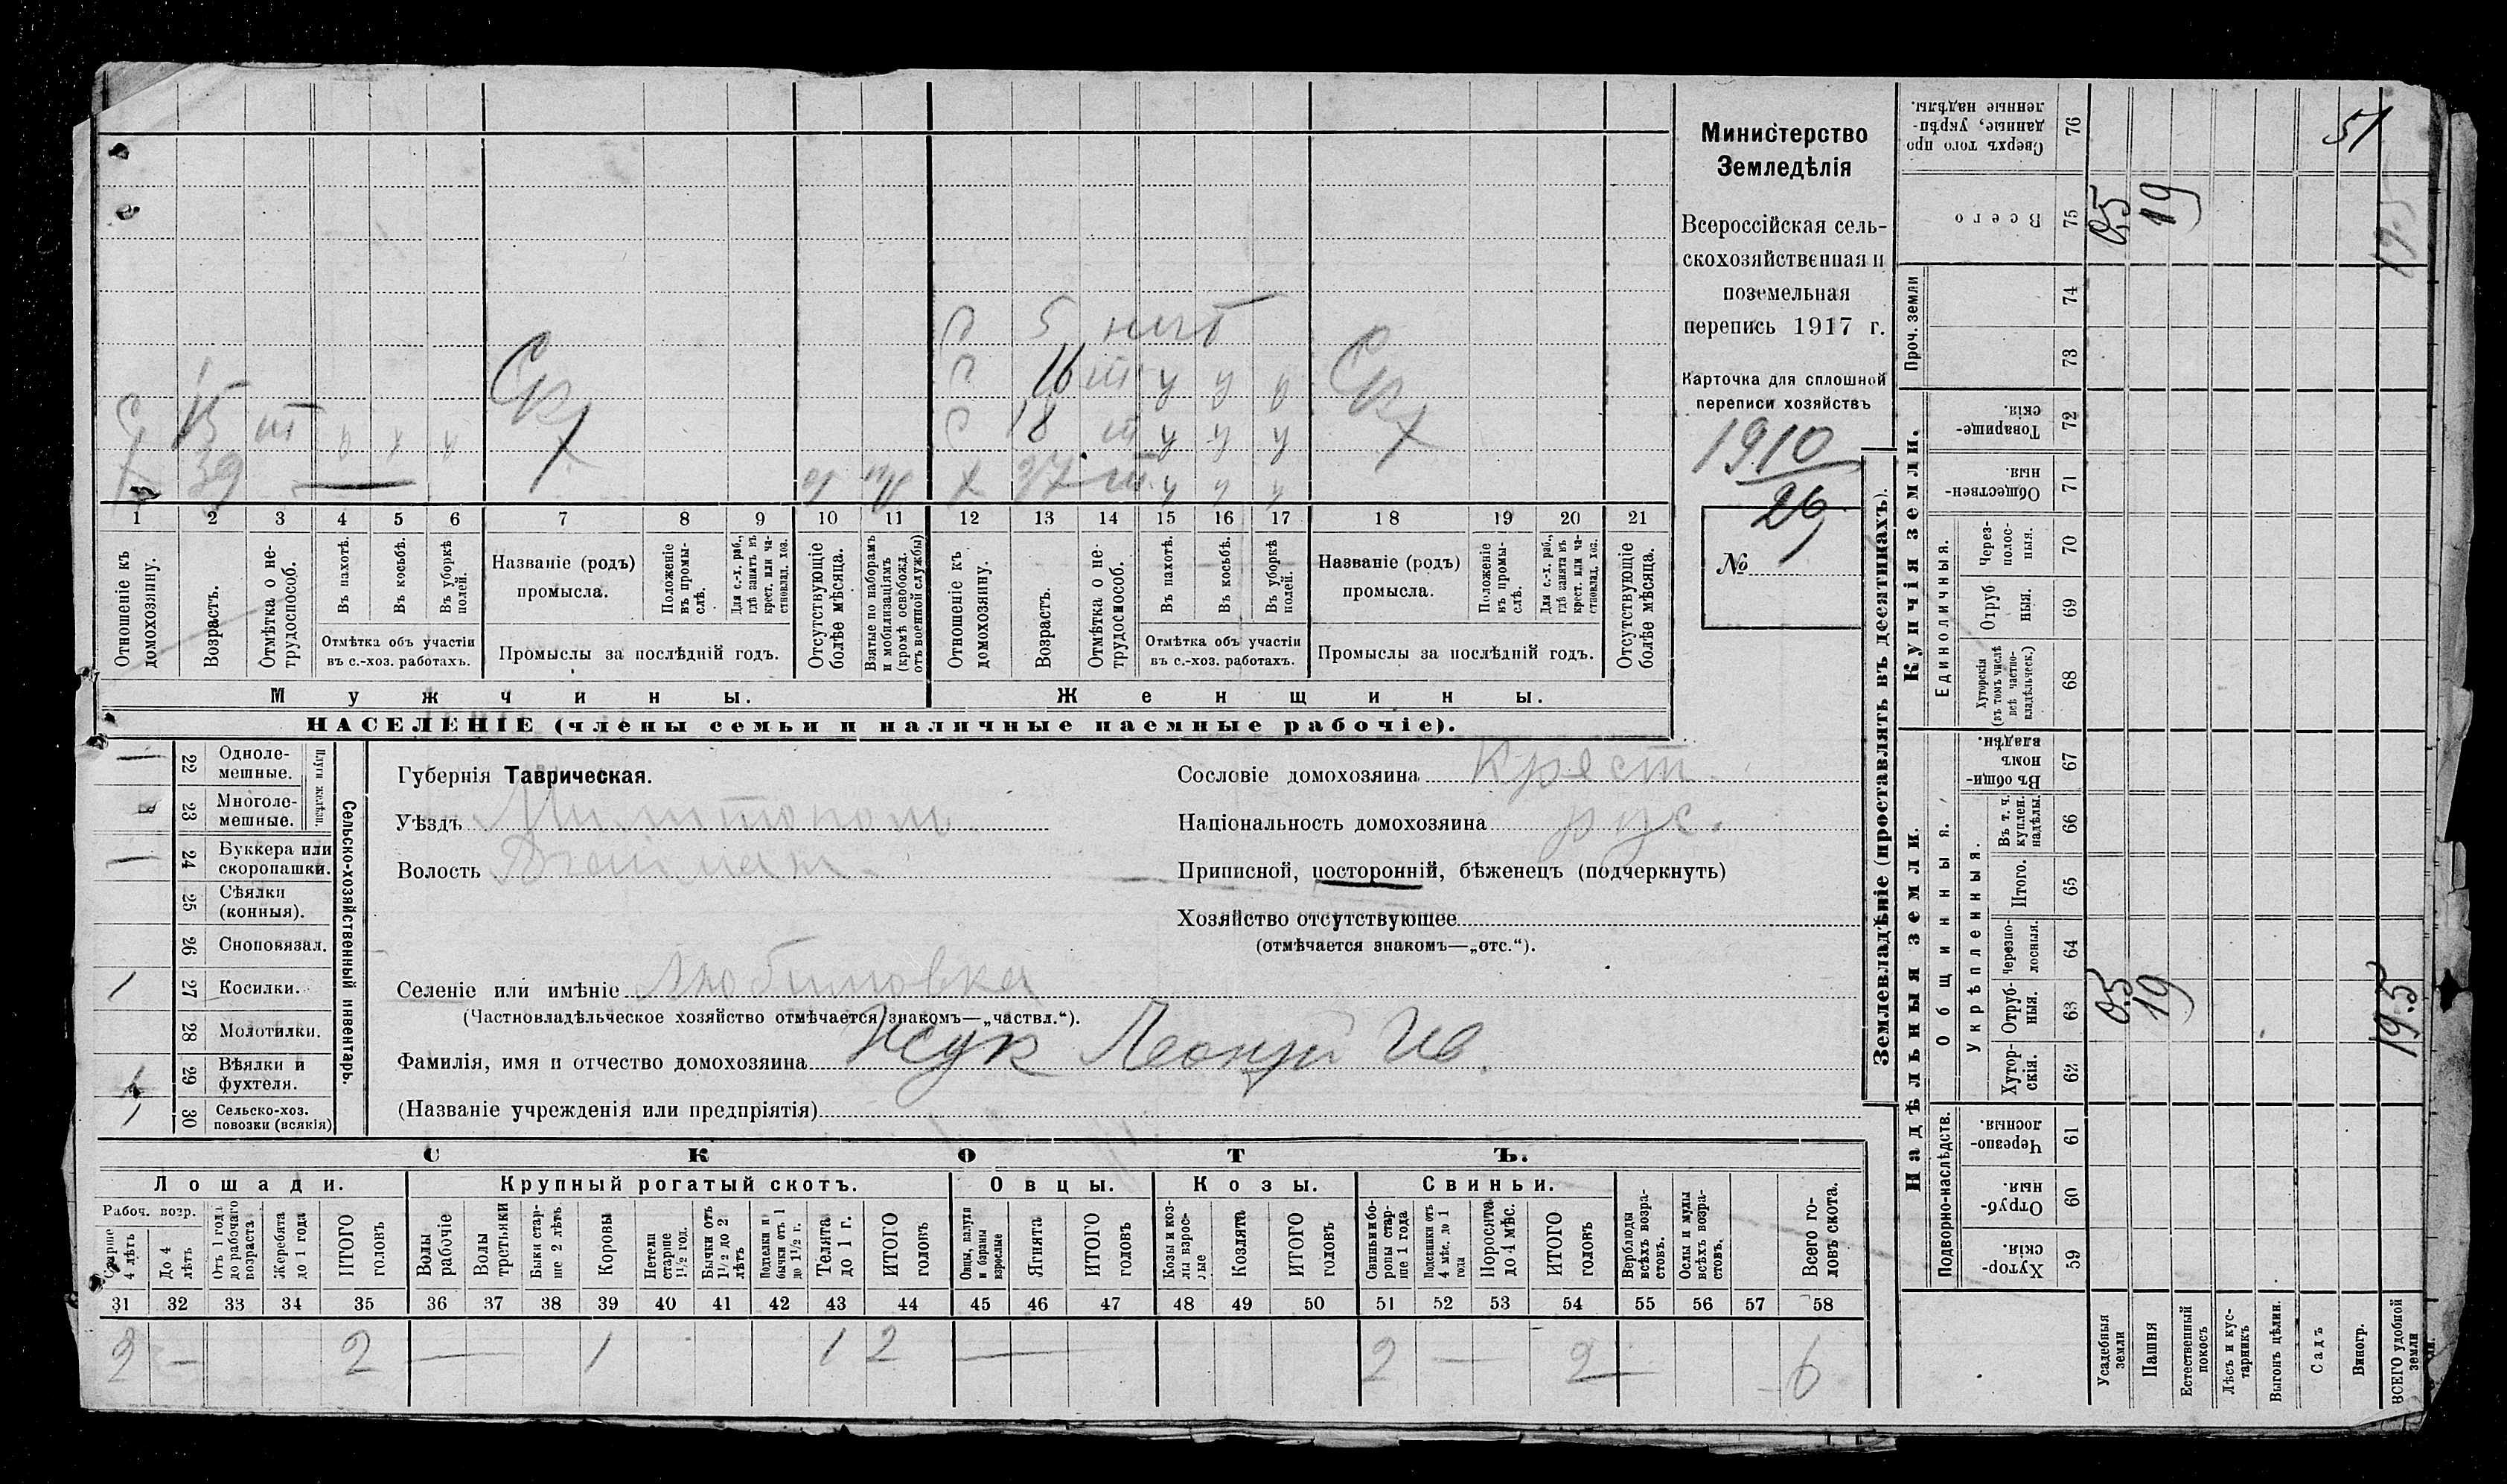 Министерство
Земледѣлія
Всероссійская сель-
скохозяйственная и
поземельная
перепись 1917 г.
Карточка для сплошной
переписи хозяйствъ
1910
26
№
5 нт
16 ш у у у Сх
15 ш у у у Сх
18 ш у у у
Х 39
Х 37 ш у у у
1 2 3 4 5 6 7 8 9 10 11 12 13 14 15 16 17 18 19 20 21
Отношеніе къ домохозяину.
Возрастъ.
Отмѣтка о не-трудоспособ.
Въ пахотѣ.
Въ косьбѣ.
Въ уборкѣ полей.
Отмѣтка объ участіи
въ с.-хоз. работахъ.
Названіе (родъ)
промысла.
Положеніе въ промы-слѣ.
Для с.-х. раб., гдѣ занятъ въ крест. или ча-стновлад. хоз.
Промыслы за послѣдній годъ.
Отсутствующіе болѣе мѣсяца.
Взятые по наборамъ и мобилизаціямъ (кромѣ освобожд. отъ военной службы)
Отношеніе къ домохозяину.
Возрастъ.
Отмѣтка о не-трудоспособ.
Въ пахотѣ.
Въ косьбѣ.
Въ уборкѣ полей.
Отмѣтка объ участіи
въ с.-хоз. работахъ.
Названіе (родъ)
промысла.
Положеніе въ промы-слѣ.
Для с.-х. раб., гдѣ занята въ крест. или ча-стновлад. хоз.
Промыслы за послѣдній годъ.
Отсутствующіе болѣе мѣсяца.
Мужчины.
Женщины.
НАСЕЛЕНІЕ (члены семьи и наличные наемные рабочіе).
Сельско-хозяйственный инвентарь.
Плуги желѣзн.
22 Одноле-мешные.
23 Многоле-мешные.
24 Буккера или скоропашки.
25 Сѣялки (конныя).
26 Сноповязал.
1 27 Косилки.
28 Молотилки.
29 Вѣялки и фухтеля.
1 30 Сельско-хоз. повозки (всякія)
Губернія Таврическая.
Уѣздъ
Волость
Селеніе или имѣніе Любимовка
(Частновладѣльческое хозяйство отмѣчается знакомъ—„частвл.“).
Фамилія, имя и отчество домохозяина Жук Леонтій Ив.
(Названіе учрежденія или предпріятія)
Сословіе домохозяина Крест.
Національность домохозяина рус.
Приписной, посторонній, бѣженецъ (подчеркнуть)
Хозяйство отсутствующее
(отмѣчается знакомъ—„отс.“).
СКОТЪ.
Лошади.
Крупный рогатый скотъ.
Овцы.
Козы.
Свиньи.
Рабоч. возр.
Старше 4 лѣтъ
До 4 лѣтъ
Отъ 1 года до рабочаго возраста
Жеребята до 1 года
ИТОГО головъ
Волы рабочіе
Волы третьяки
Быки стар-ше 2 лѣтъ.
Коровы
Нетели старше 1½ год.
Бычки отъ 1½ до 2 лѣтъ
Подтелки и бычки отъ 1 до 1½ г.
Телята до 1 г.
ИТОГО головъ
Овцы, валухи и бараны взрослые
Ягнята
ИТОГО головъ
Козы и коз-лы взрос-лые
Козлята
ИТОГО головъ
Свиньи и бо-ровы стар-ше 1 года
Подсвинки отъ 4 мѣс. до 1 года
Поросята до 4 мѣс.
ИТОГО головъ
Верблюды всѣхъ возра-стовъ.
Ослы и мулы всѣхъ возра-стовъ.
Всего го-ловъ скота.
31 32 33 34 35 36 37 38 39 40 41 42 43 44 45 46 47 48 49 50 51 52 53 54 55 56 57 58
2 — 2 — 1 1 2 — 2 — 2 — 6
Землевладѣніе (проставлять въ десятинахъ).
Купчія земли.
Надѣльныя земли.
Сверхъ того про данные, укрѣп-ленные надѣлы. 76
Всего 75
Проч. земли
74
73
Товарище-скія. 72
Обществен-ныя. 71
Единоличныя.
Через-полос-ныя. 70
Отруб ныя. 69
Хуторскія (въ томъ числѣ всѣ частно-владѣльческ.) 68
Въ общи-номъ владѣн. 67
Общинныя.
Укрѣпленныя.
Въ т. ч. куплен. надѣлы. 66
Итого. 65
Черезпо-лосныя. 64
Отруб-ныя. 63
Хутор-скія. 62
Подворно-наслѣдств.
Черезпо-лосныя. 61
Отруб-ныя. 60
Хутор-скія. 59
Усадебныя земли
Пашня
Естественный покосъ
Лѣсъ и кус-тарникъ
Выгонъ цѣлин.
Садъ
Виногр.
ВСЕГО удобной земли
51
0,5 19 19.5
0,5 19 19.5